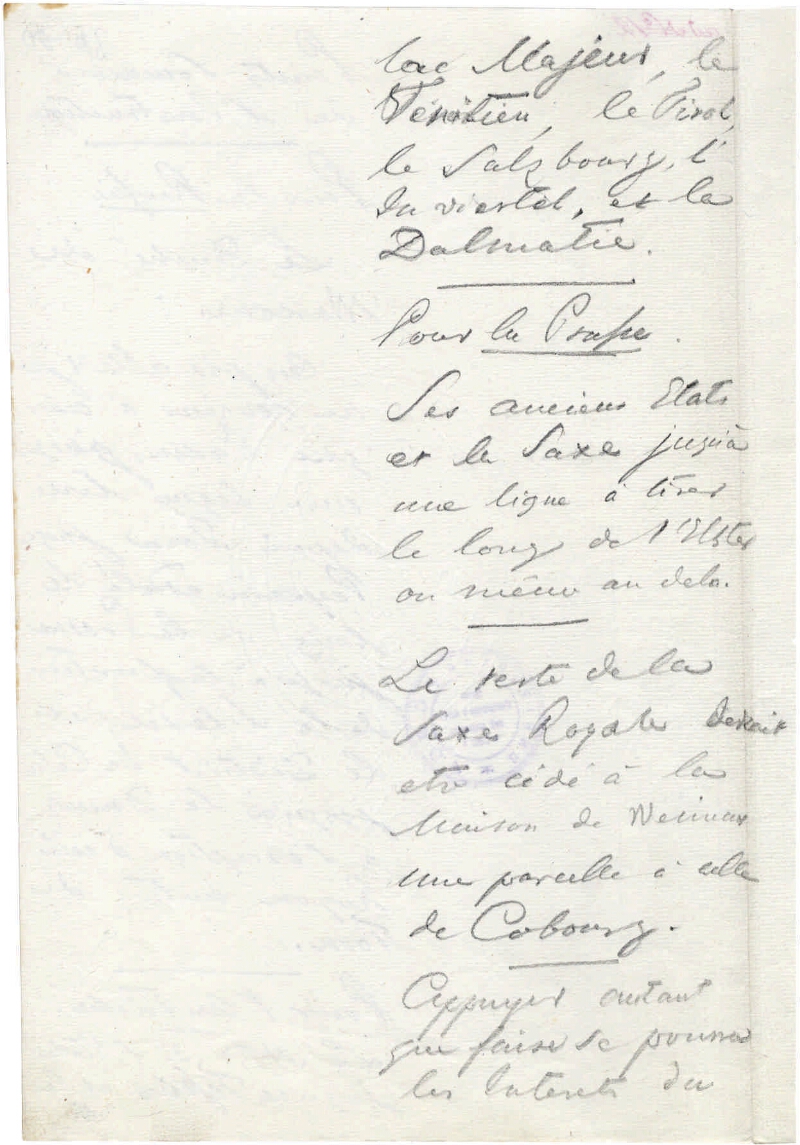 lac Majeur, le
Vénitien, le Tirol,
le Salzbourg, l'
Inviertel, et la
Dalmatie.
Pour la Prusse.
Ses anciens Etats
et la Saxe jusqu'à
une ligne à tirer
le long de l'Elster
ou même au delà.
Le reste de la
Saxe Royale devait
etre cédé à la
Maison de Weimar
une parcelle à celle
de Cobourg.
Appuyer autant
que faire se pourra
les Interets du